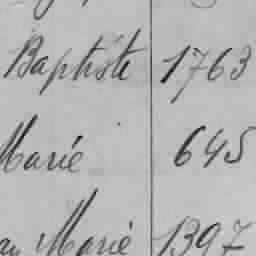 Baptiste 1763
Marie 645
Marie 1397